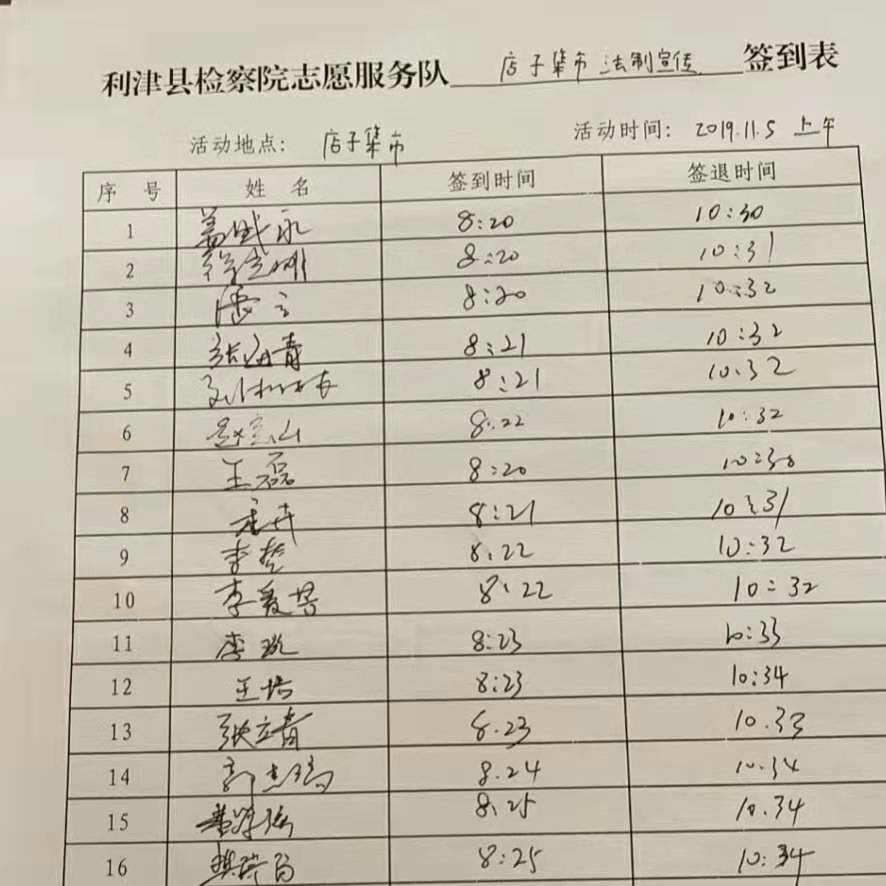 利津县检察院志愿服务队 店子集市 法制宣传 签到表
活动地点: 店子集市 活动时间: 2019.11.5 上午
序 号 姓 名 签到时间 签退时间
1 8:20 10:30
2 8:20 10:31
3 潘 8:20 10:32
4 张海青 8:21 10:32
5 刘 8:21 10:32
6 赵宝山 8.22 10:32
7 王磊 8:20 10:30
8 8:21 10:31
9 李哲 8:22 10:32
10 李爱 8:22 10:32
11 李 8:23 10:33
12 王培 8:23 10:34
13 张立青 8.23 10.33
14 郭志 8.24 10.34
15 8:25 10.34
16 8:25 10:34